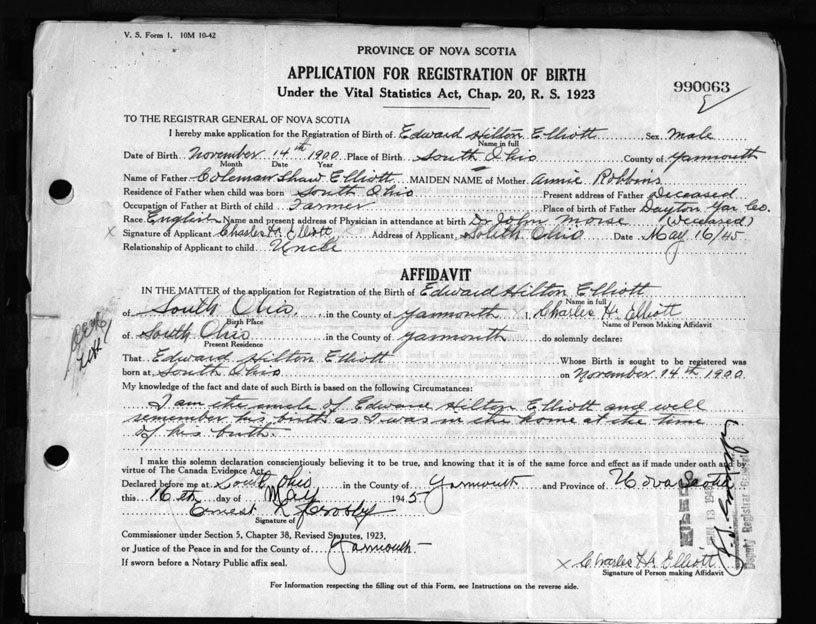 V. S. Form 1. 10M 10-42
PROVINCE OF NOVA SCOTIA
APPLICATION FOR REGISTRATION OF BIRTH
990063
Under the Vital Statistics Act, Chap. 20, R. S. 1923
TO THE REGISTRAR GENERAL OF NOVA SCOTIA
I hereby make application for the Registration of Birth of Edward Hilton Elliott Sex Male
Name in full
Date of Birth November 14th 1900 Place of Birth South Ohio County of Yarmouth
Month Date Year
Name of Father Coleman Shaw Elliott MAIDEN NAME of Mother Annie Robbins
Residence of Father when child was born South Ohio Present address of Father Deceased
Occupation of Father at Birth of child Farmer Place of birth of Father Dayton Yar Co.
Race English Name and present address of Physician in attendance at birth Dr John Morse (Deceased)
X Signature of Applicant Charles H. Elliott Address of Applicant South Ohio Date May 16/45
Relationship of Applicant to child Uncle
AFFIDAVIT
IN THE MATTER of the application for Registration of the Birth of Edward Hilton Elliott
Name in full
of South Ohio in the County of Yarmouth X I, Charles H. Elliott
Birth Place Name of Person Making Affidavit
of South Ohio in the County of Yarmouth do solemnly declare:
Present Residence
That Edward Hilton Elliott Whose Birth is sought to be registered was
born at South Ohio on November 14th 1900
My knowledge of the fact and date of such Birth is based on the following Circumstances:
I am the uncle of Edward Hilton Elliott and well
remember his birth as I was in the home at the time
of his birth.
I make this solemn declaration conscientiously believing it to be true, and knowing that it is of the same force and effect as if made under oath and by
virtue of The Canada Evidence Act.
Declared before me at South Ohio in the County of Yarmouth and Province of Nova Scotia
this 16th day of May 1945
Ernest R Crosby
Signature of
Commissioner under Section 5, Chapter 38, Revised Statutes, 1923,
or Justice of the Peace in and for the County of Yarmouth
If sworn before a Notary Public affix seal.
X Charles H. Elliott
Signature of Person making Affidavit
For Information respecting the filling out of this Form, see Instructions on the reverse side.
Deputy Registrar General